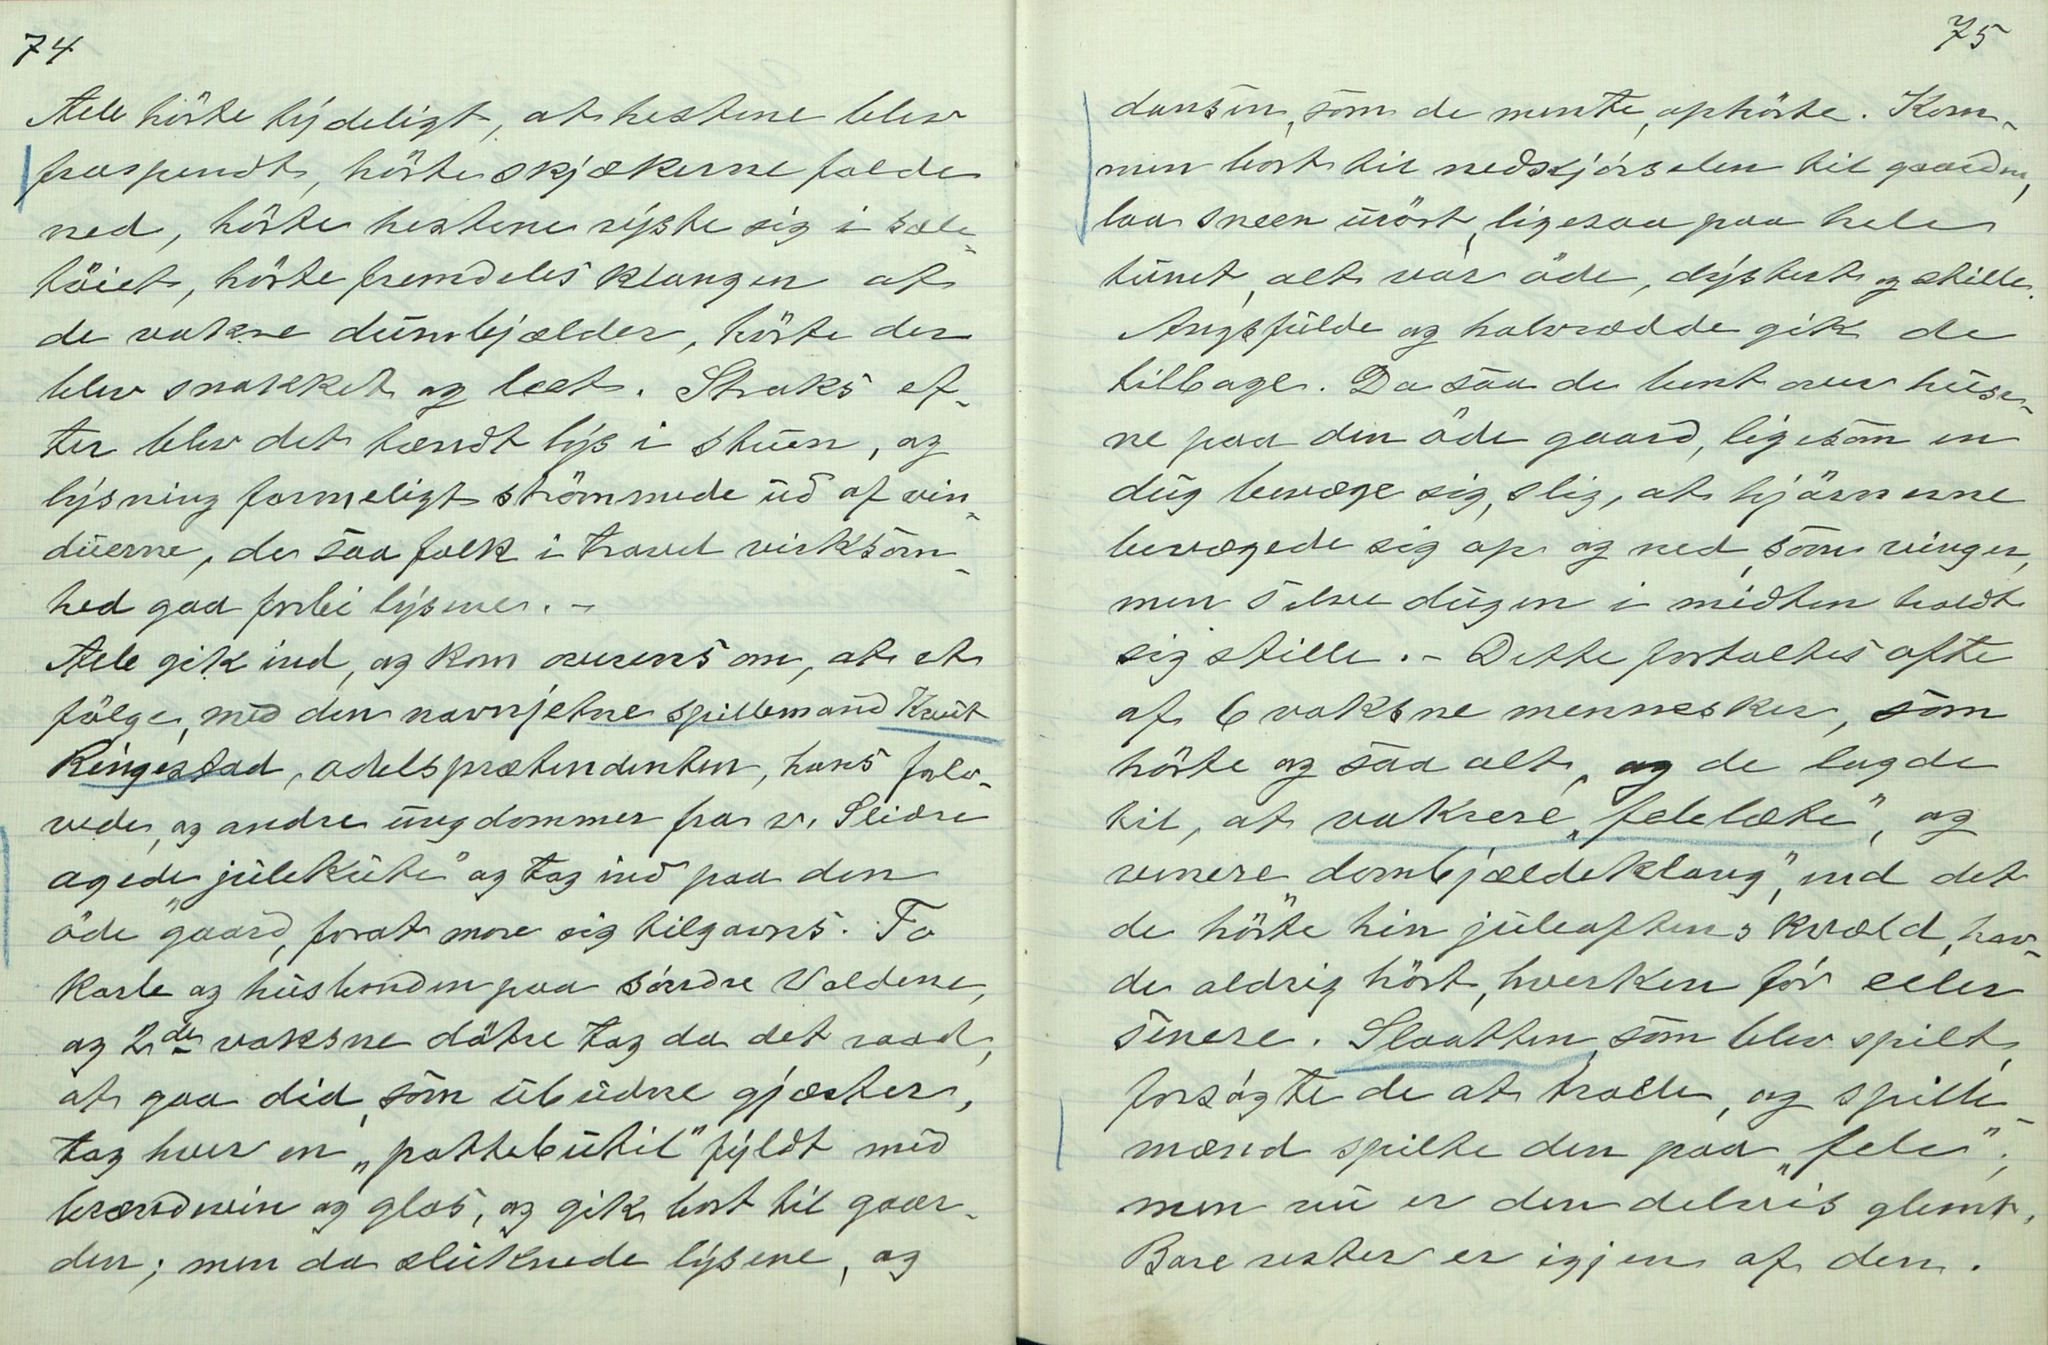 74
Alle hörte tydeligt, at hestene blev
fraspendt, hörte skjækerne falde
ned, hörte hestene ryste sig i sæle-
töiet, hörte fremdeles klangen af
de vakre dumbjælder, hörte der
blev snakket og leet. Straks ef-
ter blev det tændt lys i stuen, og
lysning formeligt strömmede ud af vin-
duerne, de saa folk i travel virksom-
hed gaa forbi lysene. -
Alle gik ind, og kom overens om, at et
fölge, med den navngjetne spillemand Knut
Ringestad, adelsprætendenten, hans folo-
vede, og andre ungdommer fra v. Slidre
agede "juleküte" og tog ind paa den
öde gaard, forat more sig tilgavns. To
karle og husbonden paa söndre Valdene,
og 2de vaksne dötre tog da det raad,
at gaa did, som übudne gjæster,
tog hver en „pottebutil" fyldt med
brændevin og glas, og gik bort til gaar-
den; men da sluknede lysene, og
75
dansen, som de mente, ophörte. Kom-
men bort til nedkjörselen til gaarden,
laa sneen urört, ligesaa paa hele
tunet, alt var öde, dystert og stille.
Angsfulde og halvrædde gik de
tilbage. Da saa de bent over huse-
ne paa den öde gaard, ligesom en
dug bevæge sig, slig, at hjörnerne
bevægede sig op og ned, som vinger,
men selve dugen i midten holdt
sig stille. - Dette fortaltes ofte
af 6 vaksne mennesker, som
hörte og saa alt, og de lagde
til, at vakrere „felelæte", og
renere „dombjældeklang", end det
de hörte hin juleaftens kvæld, hav-
de aldrig hört, hverken för eller
senere. Slaatten, som blev spilt,
forsögte de at tralle, og spille-
mænd spilte den paa „fele";
men nu er den delvis glemt.
Bare rester er igjen af den.